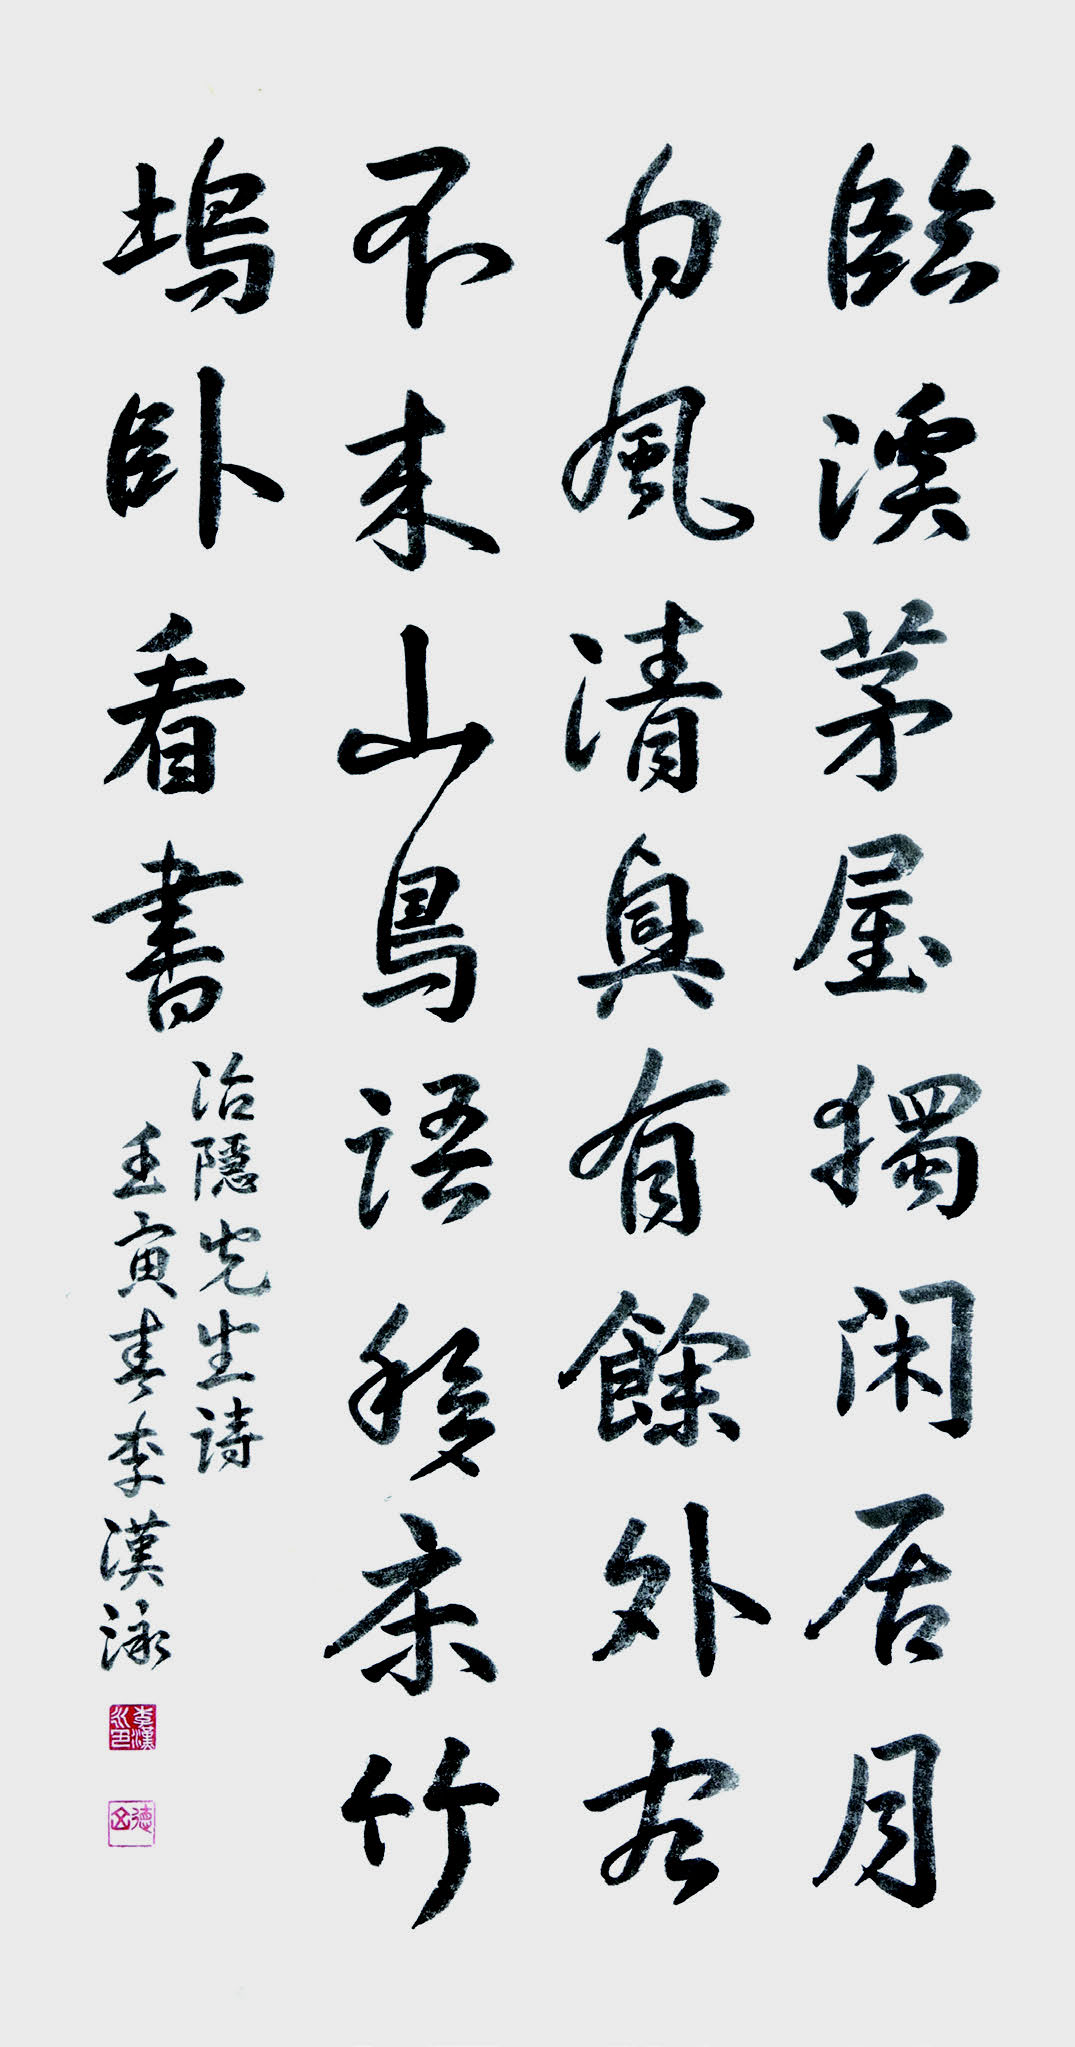 臨溪茅屋獨閑居月
白風清興有餘外客
不来山鳥語移床竹
塢卧看書
冶隱先生詩
壬寅春李漢泳